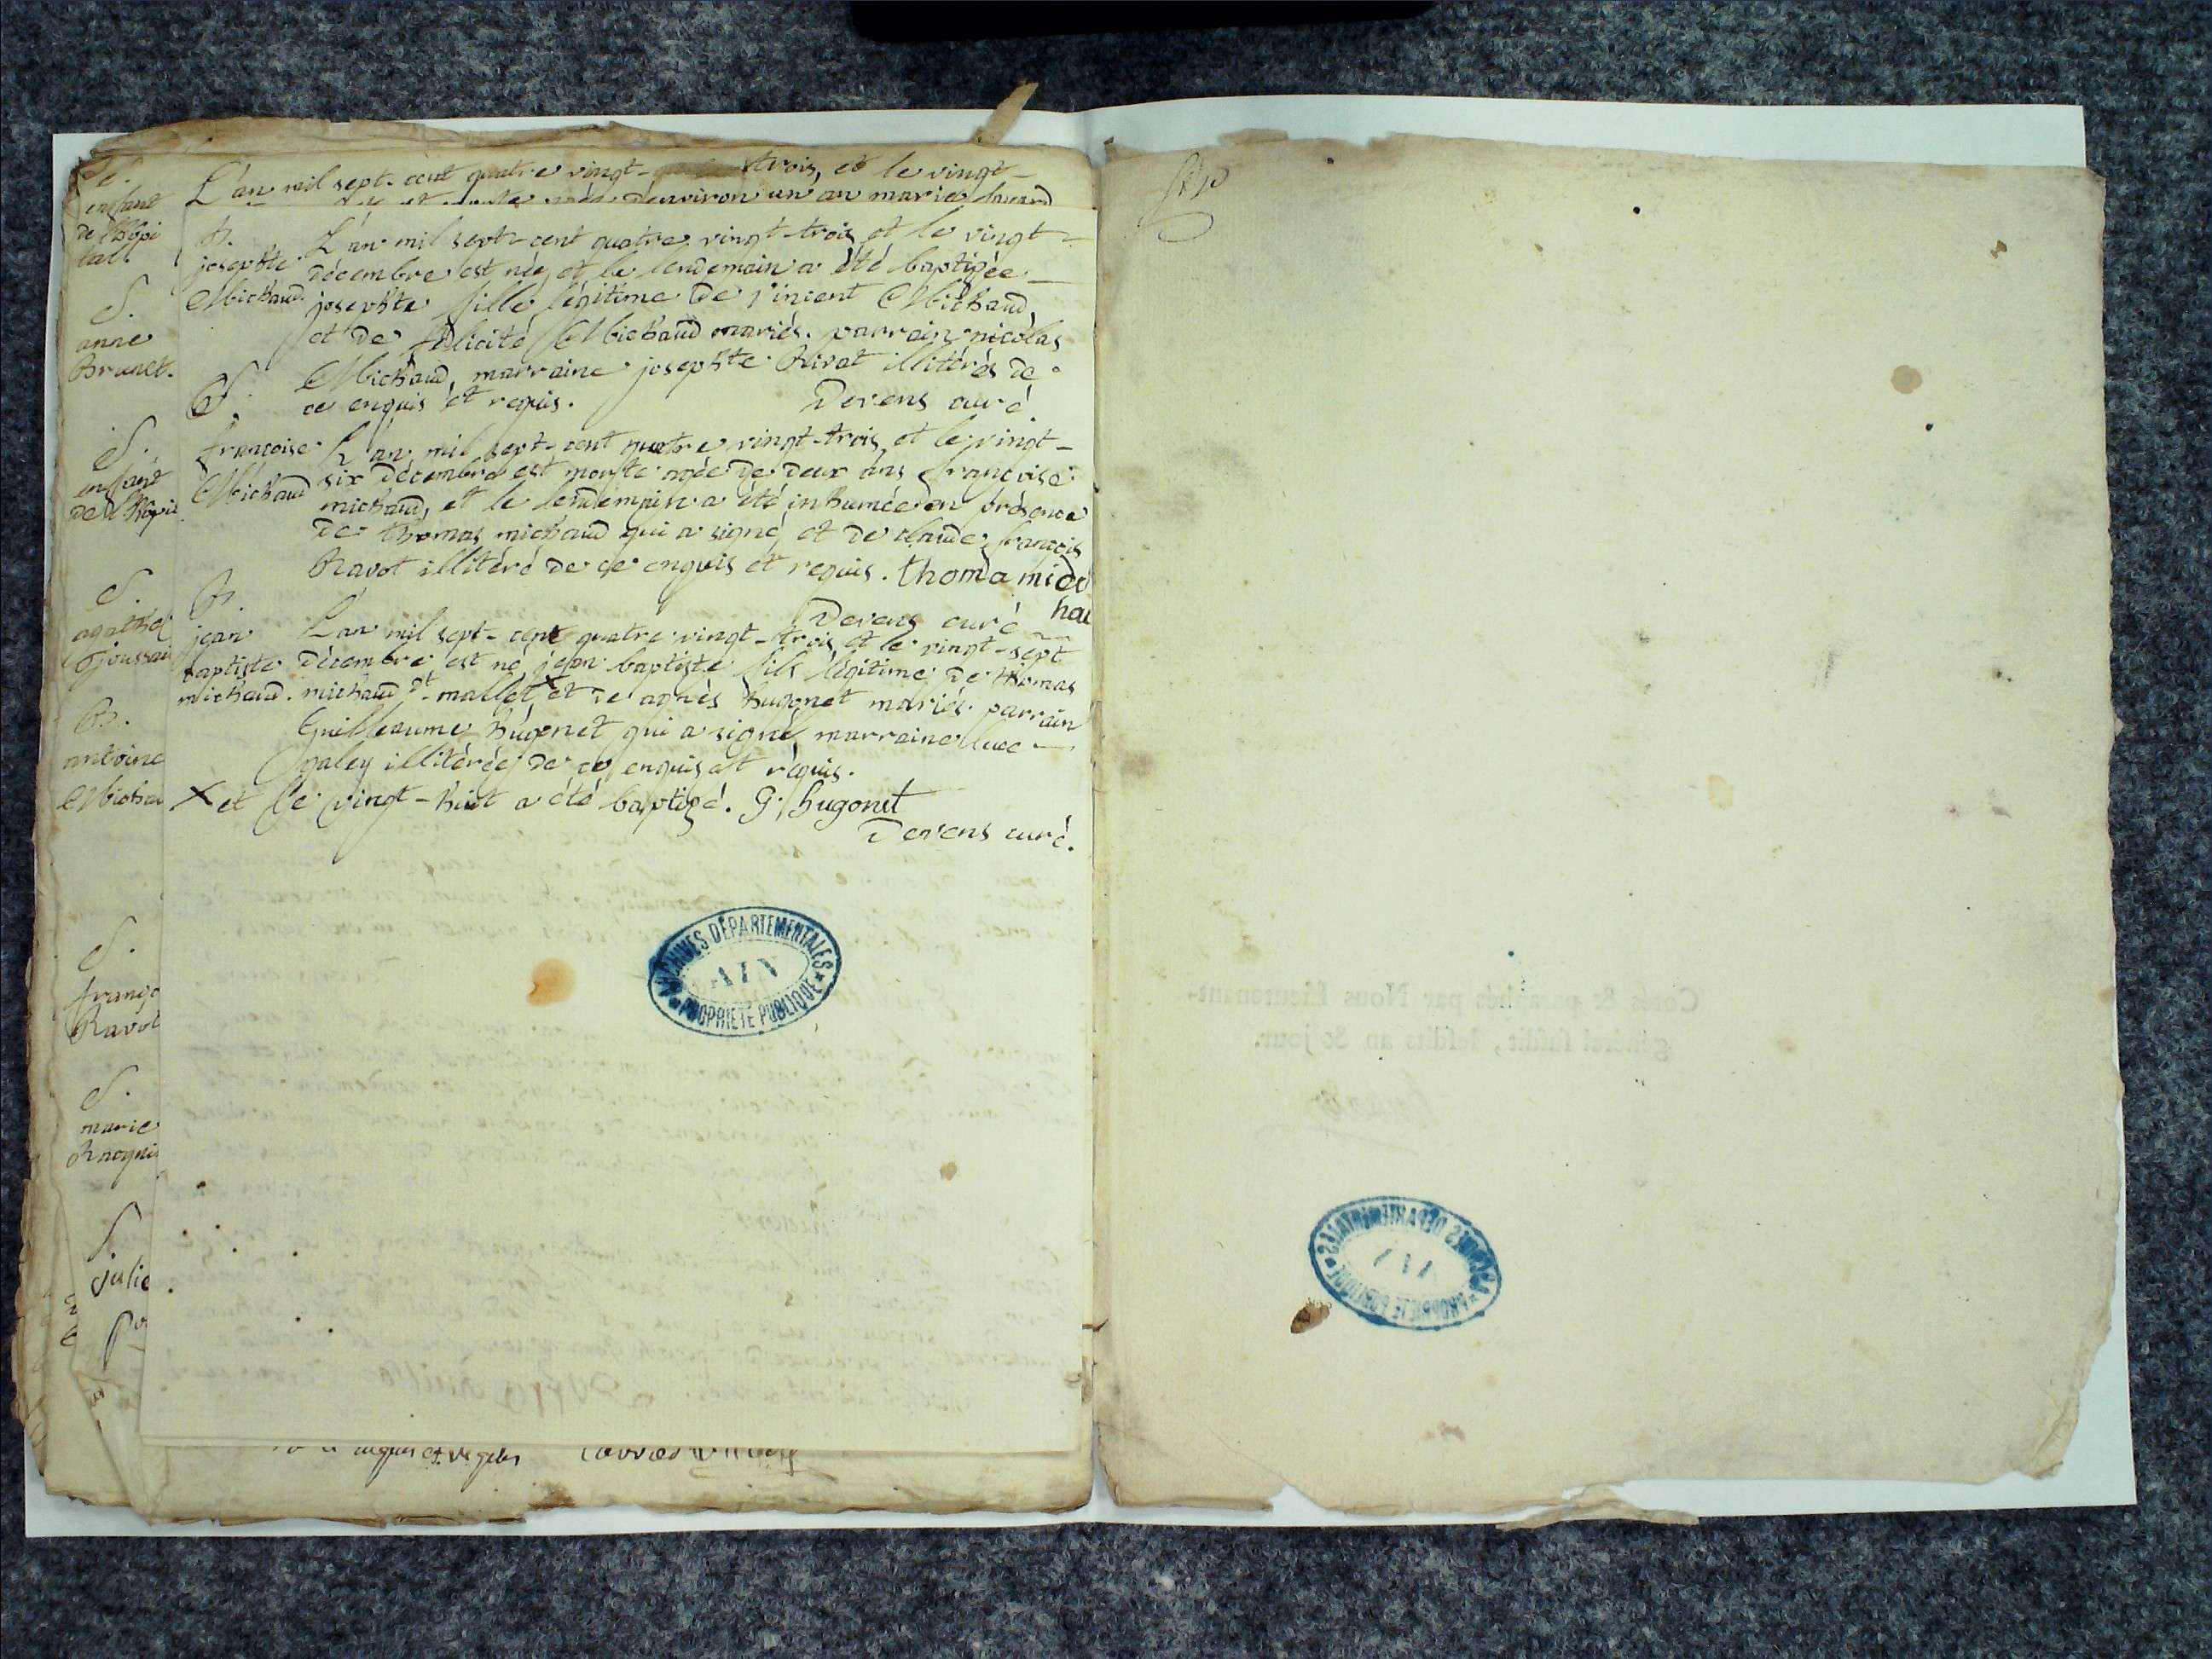 S.
enfant
de l'hôpi
tal
S.
anne
Brunet.
S.
enfant
de l'hôpi
S.
agathe
Goussai
B.
antoine
Michau
S.
franço
Ravot
S.
marie
Raquis
S
julie
L'an mil sept-cent quatre vingt- trois, et le vingt-
d'environ un an marie
B.
josephte
Michaud.
L'an mil sept-cent quatre vingt-trois et le vingt-
décembre est née, et le lendemain a été baptizée
josephte fille légitime de vincent Michaud,
et de félicité Michaud mariés. parrain nicolas
Michaud, marraine josephte Rivat illitérés de
ce enquis et requis. Devens curé
S.
françoise
Michaud
L'an mil sept-cent quatre vingt-trois, et le vingt-
six décembre est morte agée de deux ans françoise
michaud, et le lendemain a été inhumée en présence
de thomas michaud qui a signé, et de claude françois
Ravot illitéré de ce enquis et requis. thoma mic
hau
Devens curé
B.
jean
baptiste
michaud.
L'an mil sept-cent quatre vingt-trois, et le vingt-sept
décembre est né jean baptiste fils légitime de thomas
michaud dt mallet X et de agnès hugonet mariés. parrain
Guilleaume hugonet qui a signé, marraine luce
galey illitérée de ce enquis et requis.
X et le vingt-huit a été baptizé. G. hugonet
Devens curé.
ARCHIVES DÉPARTEMENTALES
AIN
PROPRIÉTÉ PUBLIQUE
Cotés & paraphés par Nous Lieutenant-
général susdit, lesdits an & jour.
ARCHIVES DÉPARTEMENTALES
AIN
PROPRIÉTÉ PUBLIQUE